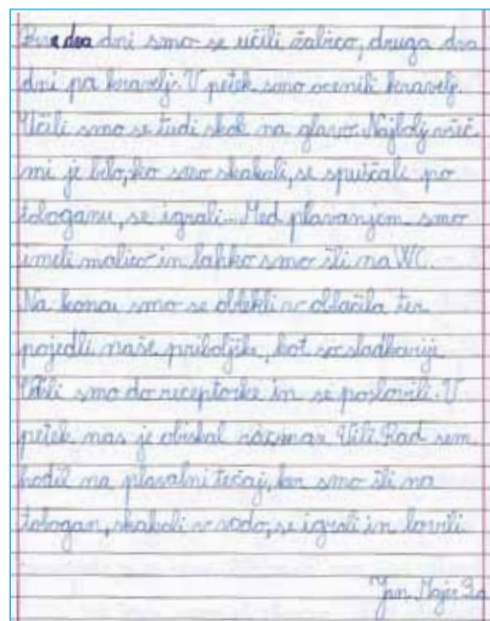 Prva dva dni smo se učili žabico, druga dva
dni pa kravelj. V petek smo ocenili kravelj.
Učili smo se tudi skok na glavo. Najbolj všeč
mi je bilo, ko smo skakali, se spuščali po
toboganu, se igrali... Med plavanjem smo
imeli malico in lahko smo šli na WC.
Na koncu smo se oblekli v oblačila ter
pojedli naše priboljške, kot so sladkarije.
smo do receptorke in se poslovili. V
petek nas je obiskal Rad sem
hodil na plavalni tečaj, ker smo šli na
tobogan, skakali v vodo, se igrali in lovili.
Jan Majer